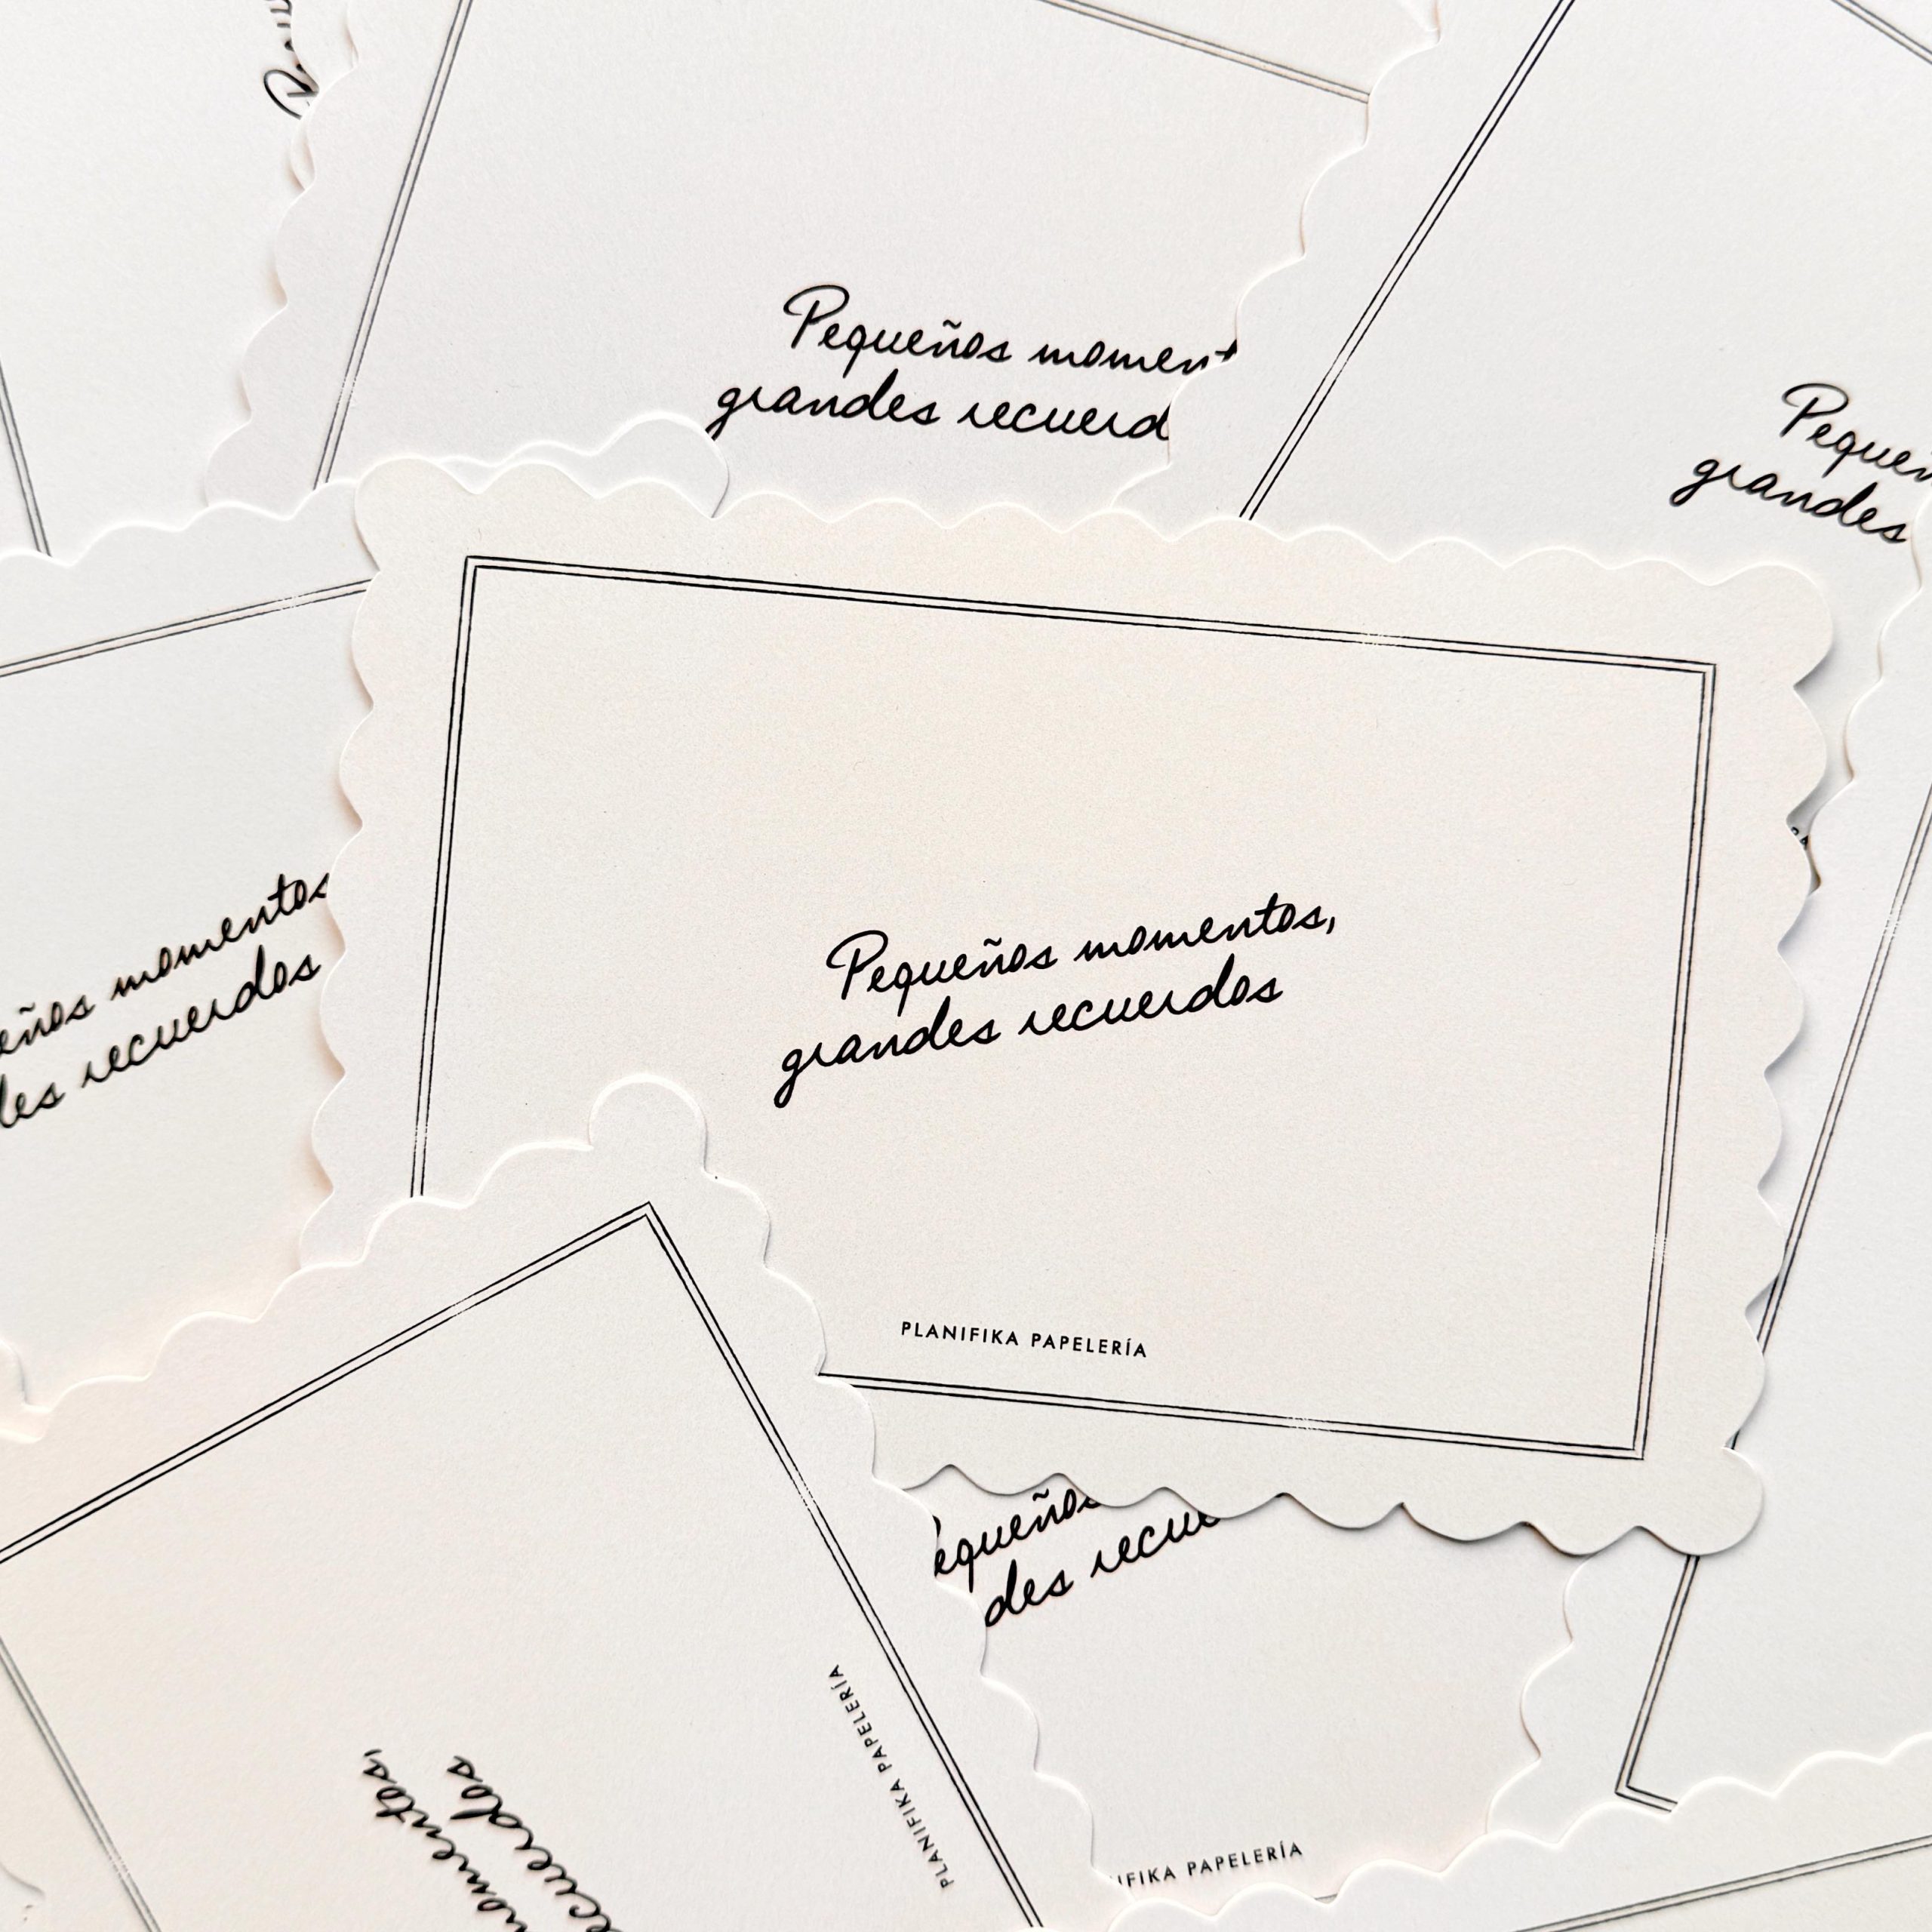 Pequeños momen
grandes recuerd
Pequeñ
grandes
eños momentos
des recuerdos
Pequeños momentos,
grandes recuerdos
PLANIFIKA PAPELERÍA
equeños
des recue
PLANIFIKA PAPELERÍA
omentos,
ecuerdos
IFIKA PAPELERÍA